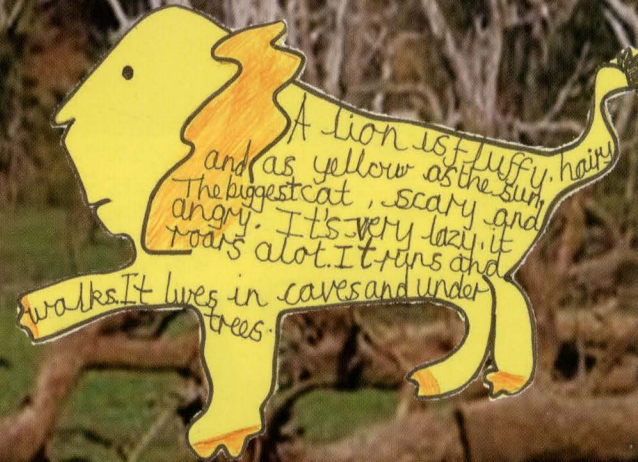 A lion is fluffy, hairy
and as yellow as the sun,
The biggest cat, scary and
angry. It's very lazy, it
roars alot. It runs and
walks. It lives in caves and under
trees.